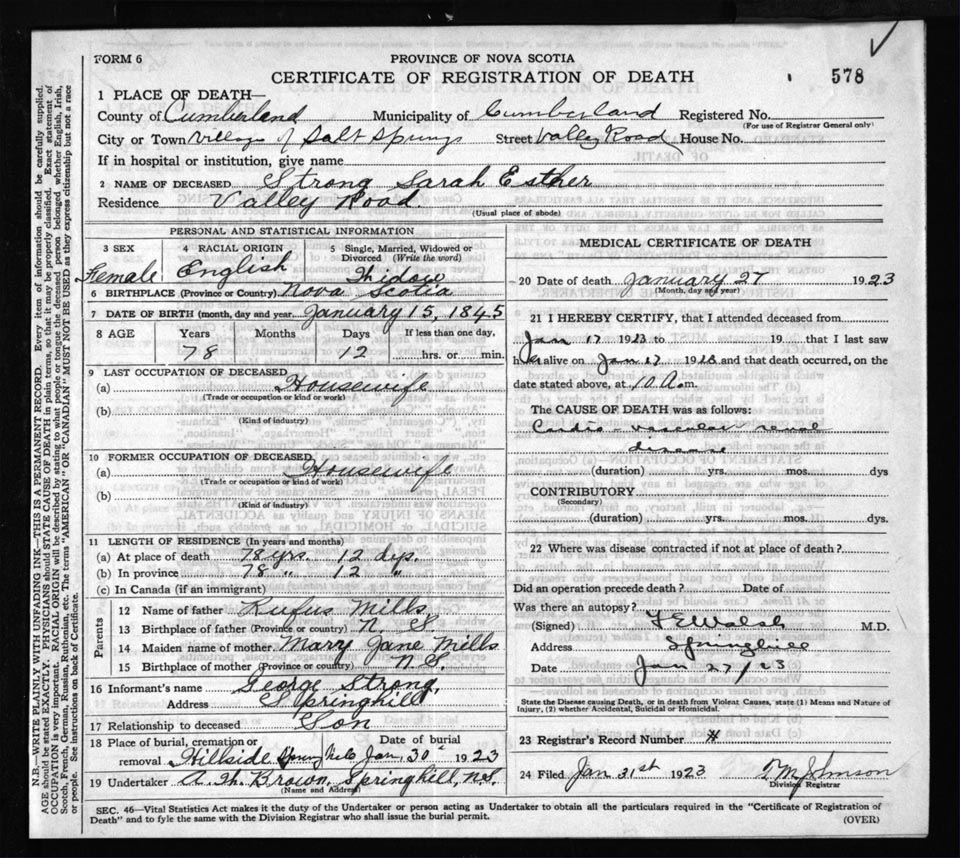 FORM 6
PROVINCE OF NOVA SCOTIA
CERTIFICATE OF REGISTRATION OF DEATH
578
1 PLACE OF DEATH—
County of Cumberland Municipality of Cumberland Registered No.
(For use of Registrar General only)
City or Town Village of Salt Springs Street Valley Road House No.
If in hospital or institution, give name
2 NAME OF DECEASED Strong Sarah Esther
Residence Valley Road
(Usual place of abode)
PERSONAL AND STATISTICAL INFORMATION
3 SEX 4 RACIAL ORIGIN 5 Single, Married, Widowed or Divorced (Write the word)
Female English Widow
6 BIRTHPLACE (Province or Country) Nova Scotia
7 DATE OF BIRTH (month, day and year January 15, 1845
8 AGE Years Months Days If less than one day,
78 12 hrs. or min.
9 LAST OCCUPATION OF DECEASED
(a) Housewife
(Trade or occupation or kind or work)
(b)
(Kind of industry)
10 FORMER OCCUPATION OF DECEASED
(a) Housewife
(Trade or occupation or kind of work)
(b)
(Kind of industry)
11 LENGTH OF RESIDENCE (In years and months)
(a) At place of death 78 yrs. 12 dys.
(b) In province 78 " 12 "
(c) In Canada (if an immigrant)
Parents
12 Name of father Rufus Mills
13 Birthplace of father (Province or country) N. S.
14 Maiden name of mother Mary Jane Mills
15 Birthplace of mother (Province or country) N.S.
16 Informant's name George Strong,
Address Springhill
17 Relationship to deceased Son
18 Place of burial, cremation or removal Hillside Date of burial Jan. 30 1923
19 Undertaker A. Th. Brown, Springhill, N.S.
(Name and Address)
MEDICAL CERTIFICATE OF DEATH
20 Date of death January 27 1923
(Month, day and year)
21 I HEREBY CERTIFY, that I attended deceased from
Jan 17 1923 to 19 that I last saw
her alive on Jan 17 1923 and that death occurred, on the
date stated above, at 10 A.m.
The CAUSE OF DEATH was as follows:
Cardio-vascular renal
disease
(duration) yrs. mos. dys
CONTRIBUTORY
(Secondary)
(duration) yrs. mos. dys.
22 Where was disease contracted if not at place of death?
Did an operation precede death? Date of
Was there an autopsy?
(Signed) F E Walsh M.D.
Address Springhill
Date Jan 27/23
State the Disease causing Death, or in death from Violent Causes, state (1) Means and Nature of
Injury, (2) whether Accidental, Suicidal or Homicidal.
23 Registrar's Record Number
24 Filed Jan 31st 1923
Division Registrar
SEC. 46—Vital Statistics Act makes it the duty of the Undertaker or person acting as Undertaker to obtain all the particulars required in the "Certificate of Registration of
Death" and to fyle the same with the Division Registrar who shall issue the burial permit.
(OVER)
N.B.—WRITE PLAINLY WITH UNFADING INK—THIS IS A PERMANENT RECORD. Every item of information should be carefully supplied.
AGE should be stated EXACTLY. PHYSICIANS should STATE CAUSE OF DEATH in plain terms, so that it may be properly classified. Exact statement of
OCCUPATION is very important. RACIAL ORIGIN will be described by stating to what people or tongue the deceased person belonged whether English, Irish,
Scotch, French, German, Russian, Ruthenian, etc. The terms "AMERICAN" OR "CANADIAN" MUST NOT BE USED as they express citizenship but not a race
or people. See instructions on back of Certificate.